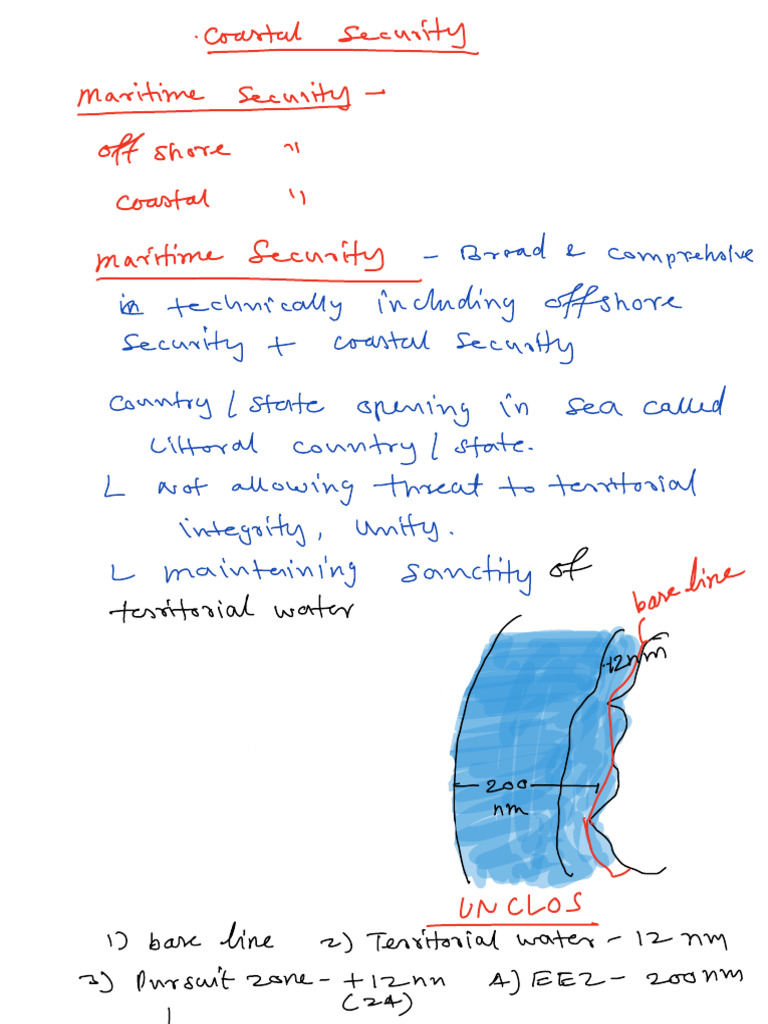 . Coastal Security
Maritime Security -
off shore "
Coastal "
Maritime Security - Broad & comprehsive
in technically including offshore
Security + coastal security
Country / state opening in sea called
Littoral country / state.
L Not allowing threat to territorial
integrity, Unity.
L maintaining sanctity of
territorial water
base line
12nm
200
nm
UNCLOS
1) base line 2) Territorial water - 12 nm
3) Pursuit zone - +12nm 4) EEZ - 200nm
(24)